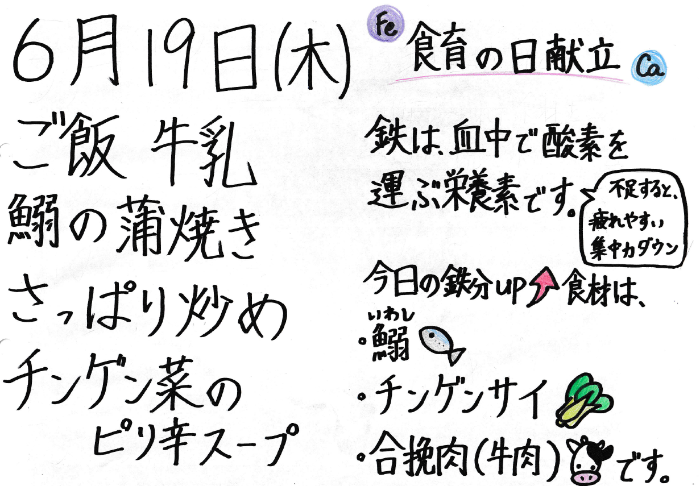 6月19日(木)
ご飯 牛乳
鰯の蒲焼き
さっぱり炒め
チンゲン菜の
ピリ辛スープ
Fe
食育の日献立
Ca
鉄は、血中で酸素を
運ぶ栄養素です。
不足すると、
疲れやすい
集中力ダウン
今日の鉄分up食材は、
いわし
・鰯
・チンゲンサイ
・合挽肉(牛肉)です。